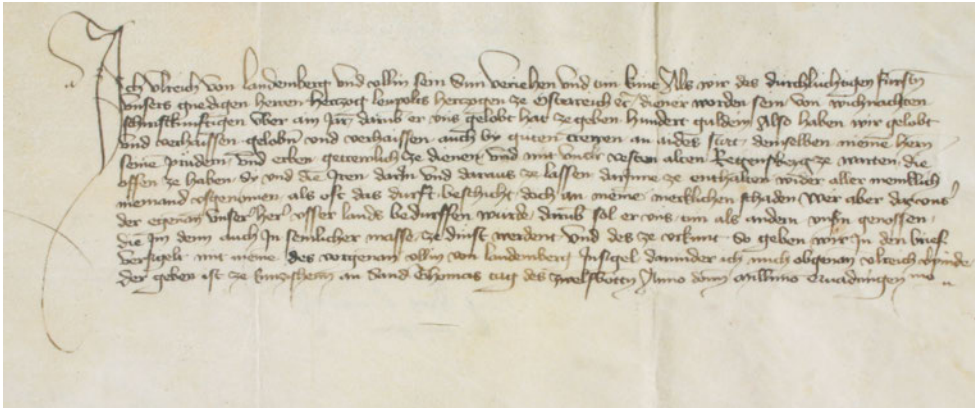 Ich Ulreich von Landemberg vnd vllin sein Sun veriehen vnd tun kunt Als wir des durchluchtigen fursten
vnsers gnedigen herren Hertzog Leupolts Hertzogen ze Osterreich etc diener worden sein von wichnachten
schierstkunftigen vber ain Jar darub er vns gelobt hat ze geben hundert guldein Also haben wir gelobt
vnd verhaissen geloben vnd verhaissen auch by guten trewen an aides statt demselben meinem hern
seinen prudern vnd erben getrewlich ze dienen vnd mit vnsr vesten alten Regensberg ze warten die
offen ze haben Sy vnd die Iren darin vnd daraus ze lassen darinne ze enthalten wider aller menklich
niemand vsgenomen als oft das durft beschicht doch an meinen merklichen schaden Wer aber daz vns
der egenan vnser her vsser lands bedurffen wurde darub sol er vns tun als andern vnsn genossen
die Im denn auch In semlicher masse ze dinst werdent Vnd des ze vrkunt So geben wir In den brief
versigelt mit meinem des vorgenan vllin von Landemberg Insigel darunder ich mich obgenan vlreich
Der geben ist ze Ensishein an Sand Thomas tag des zwelfbotten Anno domini Millimo